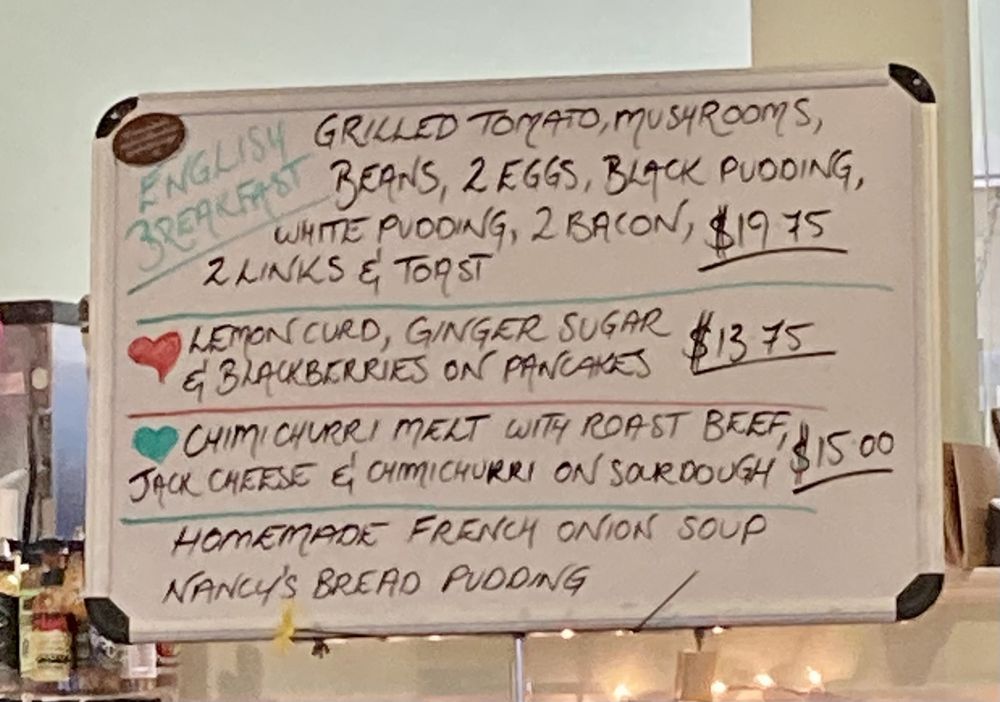 ENGLISH
BREAKFAST
GRILLED TOMATO, MUSHROOMS,
BEANS, 2 EGGS, BLACK PUDDING,
WHITE PUDDING, 2 BACON, $19 75
2 LINKS & TOAST
LEMON CURD, GINGER SUGAR
& BLACKBERRIES ON PANCAKES $13 75
CHIMICHURRI MELT WITH ROAST BEEF,
JACK CHEESE & CHIMICHURRI ON SOURDOUGH $15.00
HOMEMADE FRENCH ONION SOUP
NANCY'S BREAD PUDDING